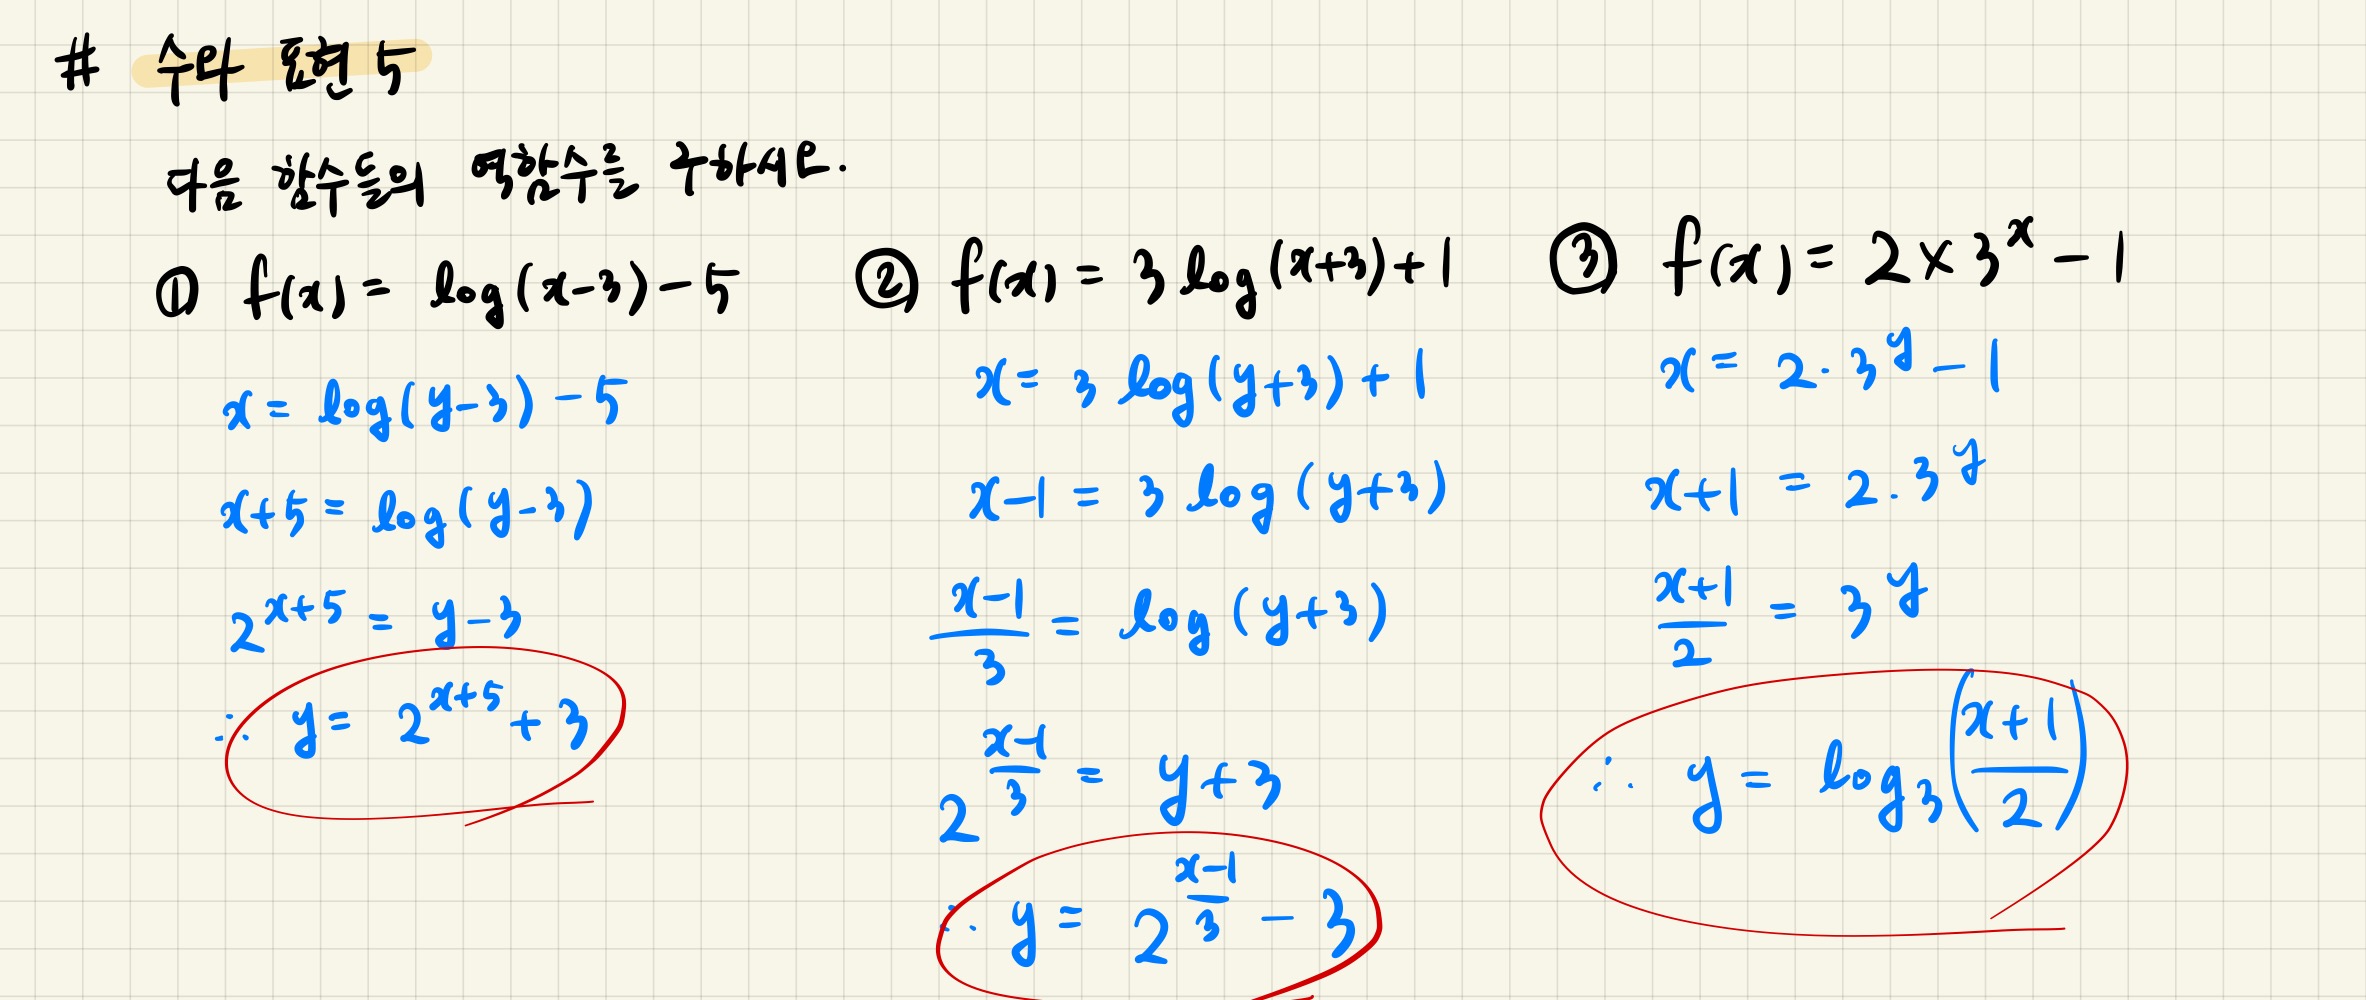 # 수와 표현 5
다음 함수들의 역함수를 구하시오.
① f(x) = log(x-3) - 5
x = log(y-3) - 5
x+5 = log(y-3)
2^{x+5} = y-3
∴ y = 2^{x+5} + 3
② f(x) = 3 log(x+3) + 1
x = 3 log(y+3) + 1
x-1 = 3 log(y+3)
\frac{x-1}{3} = log(y+3)
2^{\frac{x-1}{3}} = y+3
∴ y = 2^{\frac{x-1}{3}} - 3
③ f(x) = 2 × 3^x - 1
x = 2·3^y - 1
x+1 = 2·3^y
\frac{x+1}{2} = 3^y
∴ y = log_3(\frac{x+1}{2})